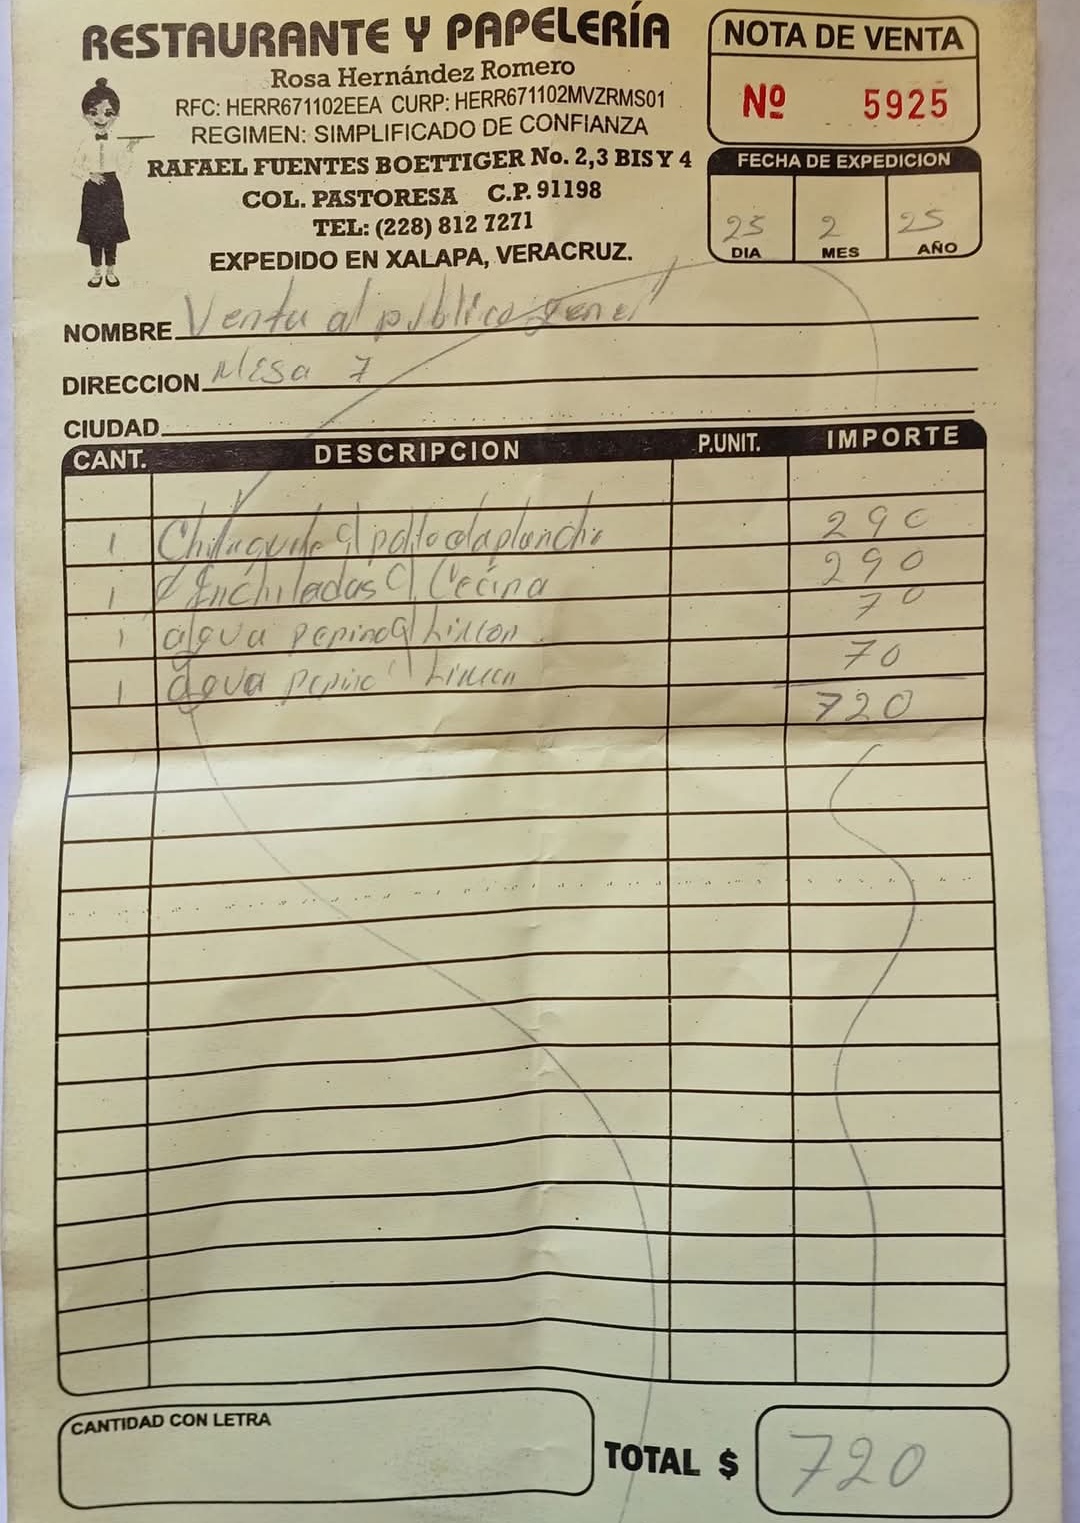 RESTAURANTE Y PAPELERÍA
Rosa Hernández Romero
RFC: HERR671102EEA CURP: HERR671102MVZRMS01
REGIMEN: SIMPLIFICADO DE CONFIANZA
RAFAEL FUENTES BOETTIGER No. 2,3 BIS Y 4
COL. PASTORESA C.P. 91198
TEL: (228) 812 7271
EXPEDIDO EN XALAPA, VERACRUZ.
NOTA DE VENTA
Nº 5925
FECHA DE EXPEDICION
2 25
DIA MES AÑO
NOMBRE Venta al publico
DIRECCION Mesa 7
CIUDAD
CANT. DESCRIPCION P.UNIT. IMPORTE
1 c/ pollo a la plancha 290
1 Enchiladas c/ Cecina 290
1 agua pepino c/ Limon 70
1 agua pepino c/ Limon 70
720
CANTIDAD CON LETRA
TOTAL $ 720